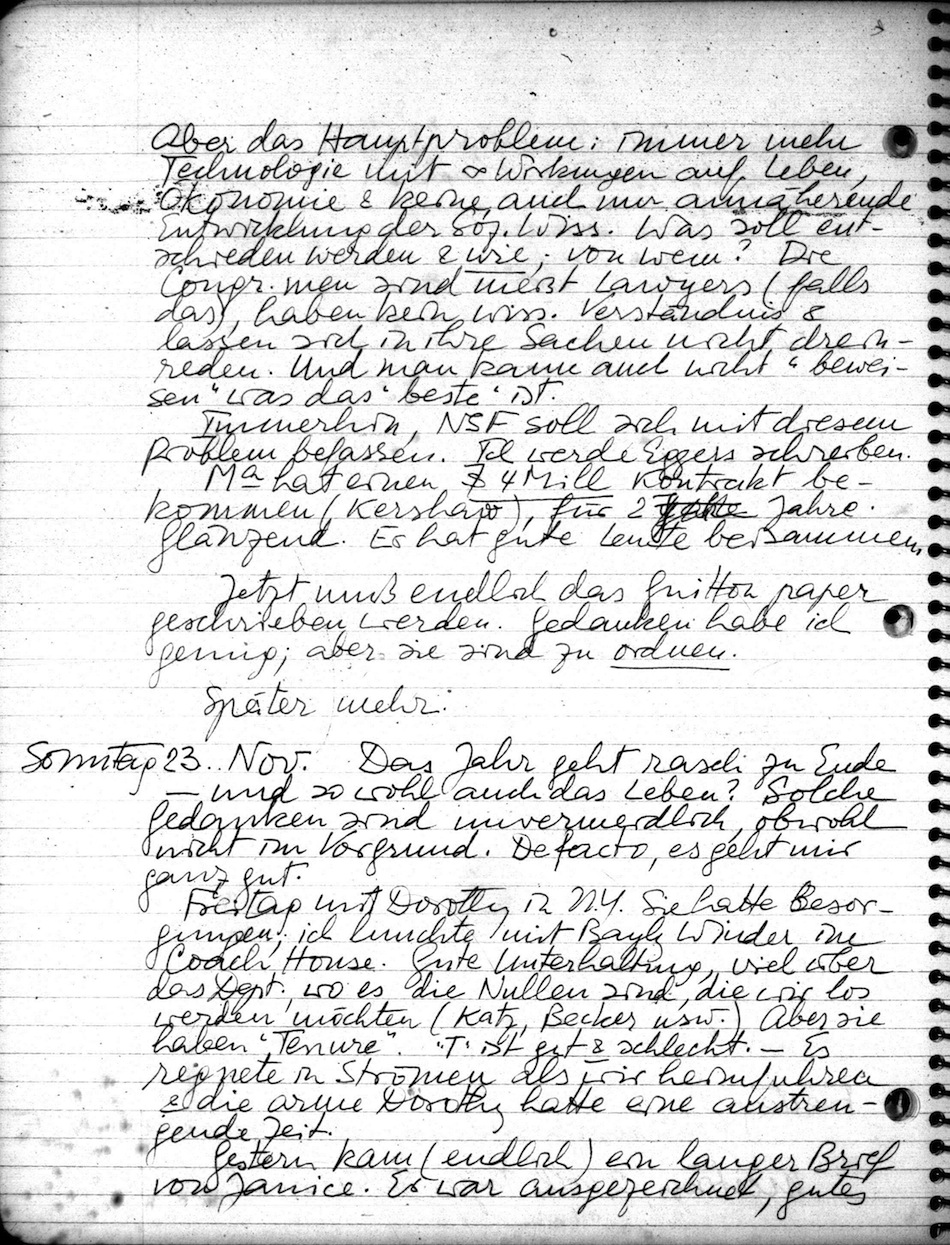 Aber das Hauptproblem: immer mehr
Technologie mit ∞ Wirkungen auf Leben,
Ökonomie & keine, auch nur annähernde
Entwicklung der Soz. Wiss. Was soll ent-
schieden werden & wie, von wem? Die
Congr. men sind meist Lawyers (falls
das), haben kein wiss. Verständnis &
lassen sich in ihre Sachen nicht drein-
reden. Und man kann auch nicht "bewei-
sen" was das "beste" ist.
Immerhin, NSF soll sich mit diesem
Problem befassen. Ich werde Eggers schreiben.
Ma hat einen $ 4 Mill Kontrakt be-
kommen (Kershaw), für 2 Jahre.
Glänzend. Er hat gute Leute beisammen.
Jetzt muß endlich das Guitton paper
geschrieben werden. Gedanken habe ich
genug; aber sie sind zu ordnen.
Später mehr.
Sonntag 23. Nov. Das Jahr geht rasch zu Ende
– und so wohl auch das Leben? Solche
Gedanken sind unvermeidlich, obwohl
nicht im Vorgrund. De facto, es geht mir
ganz gut.
Freitag mit Dorothy in N.Y. Sie hatte Besor-
gungen, ich lunchte mit Bayly Winder im
Coach House. Gute Unterhaltung, viel über
das Dept., wo es die Nullen sind, die wir los
werden möchten (Katz, Becker usw.) Aber sie
haben "Tenure". "T" ist gut & schlecht. – Es
regnete in Strömen als wir heimfuhren
& die arme Dorothy hatte eine anstren-
gende Zeit.
Gestern kam (endlich) ein langer Brief
von Janice. Er war ausgezeichnet, gutes